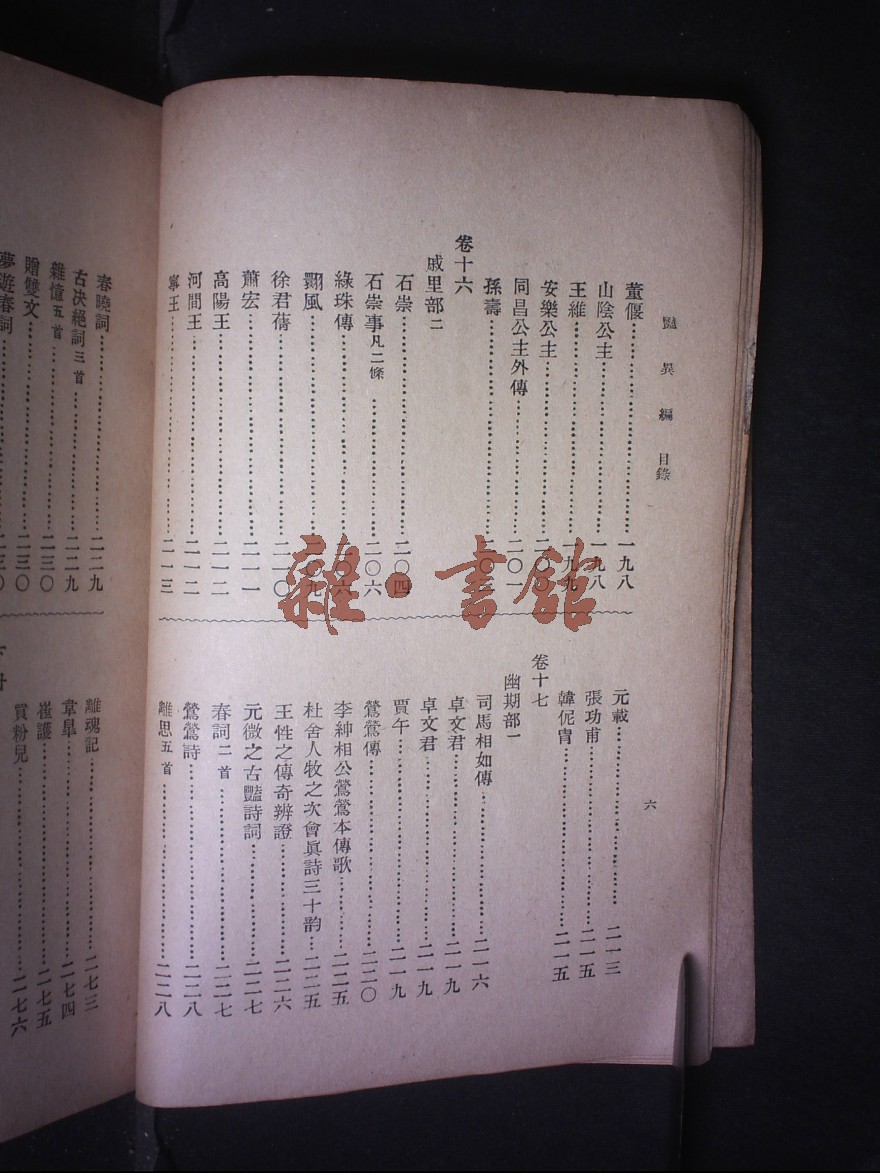 豔異編 目錄
六
董偃 一九八
山陰公主 一九八
王維 一九九
安樂公主 二〇〇
同昌公主外傳 二〇一
孫壽
卷十六
戚里部二
石崇 二〇四
石崇事凡二條 二〇六
綠珠傳 二〇六
翾風 二〇九
徐君蒨 二一〇
蕭宏 二一一
高陽王 二一二
河間王 二一二
寧王 二一三
元載 二一三
張功甫 二一五
韓侂胄 二一五
卷十七
幽期部一
司馬相如傳 二一六
卓文君 二一九
卓文君 二一九
賈午 二一九
鶯鶯傳 二二〇
李紳相公鶯鶯本傳歌 二二五
杜舍人牧之次會眞詩三十韵 二二五
王性之傳奇辨證 二二六
元微之古豔詩詞 二二七
春詞二首 二二七
鶯鶯詩 二二八
離思五首 二二八
春曉詞 二二九
古决絕詞三首 二二九
雜憶五首 二三〇
贈雙文 二三〇
夢遊春詞 二三〇
離魂記 二七三
韋臯 二七四
崔護 二七五
買粉兒 二七六
雜·書館